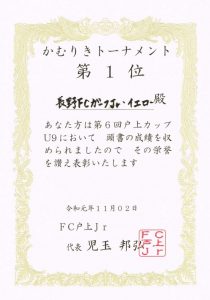 かむりきトーナメント
第１位
長野FCガーフJr・イエロー殿
あなた方は第６回戸上カップ
U９において 頭書の成績を収
められましたので その栄誉
を讃え表彰いたします
令和元年１１月０２日
ＦＣ戸上Ｊｒ
代表 児玉 邦弘